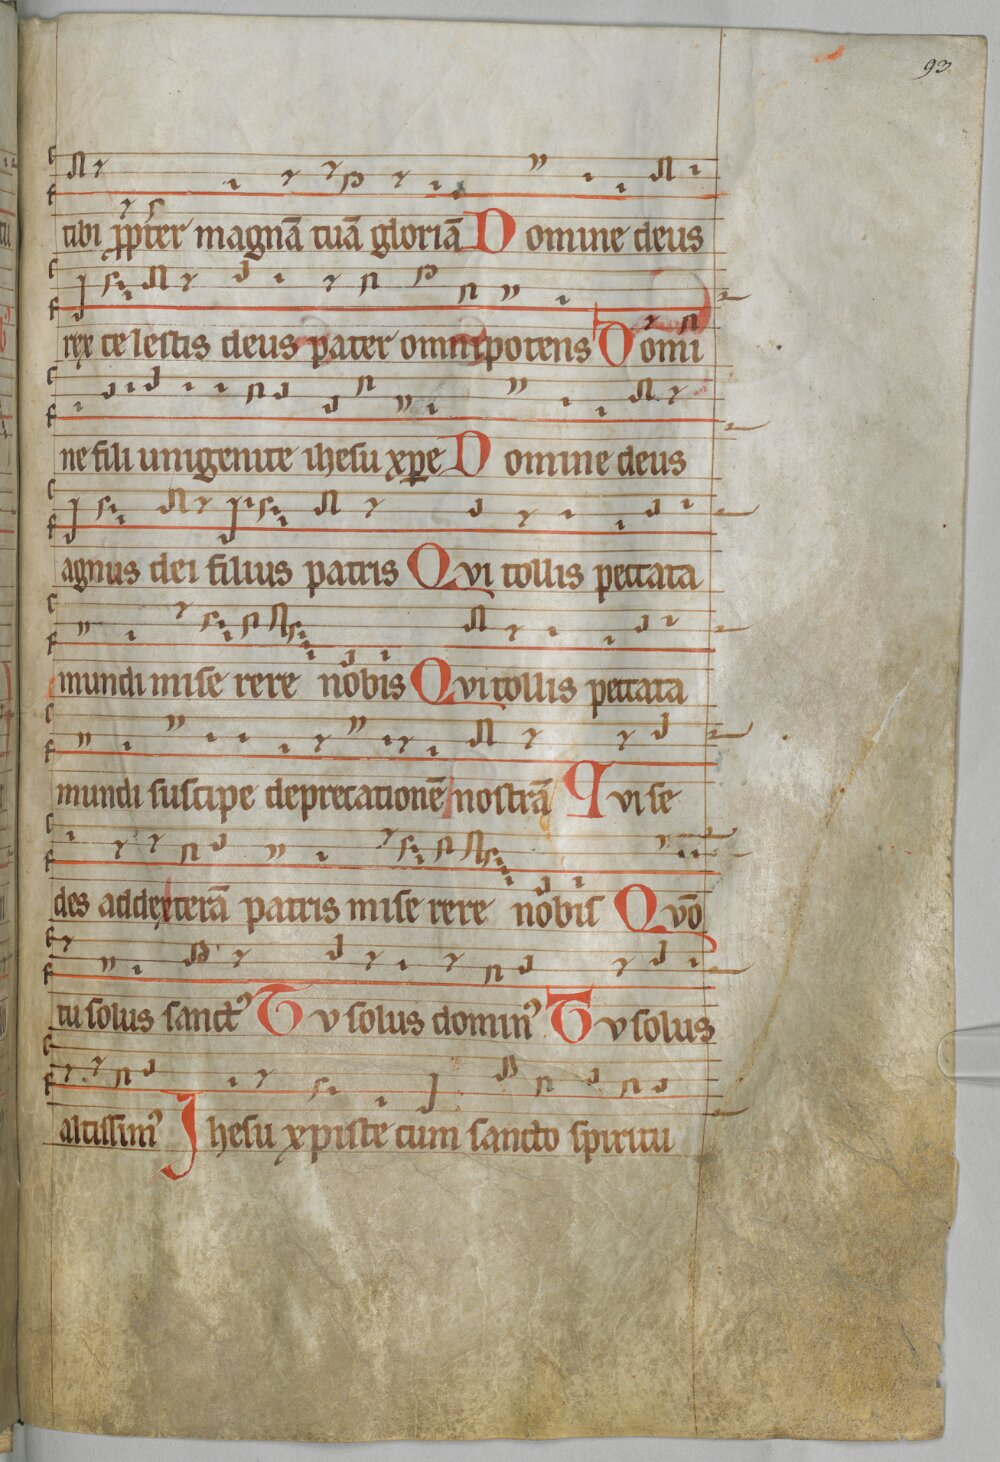 93
tibi ꝓpter magnā tuā gloriā Domine deus
rex celestis deus pater omnipotens Domi
ne fili unigenite ihesu xp̄e Domine deus
agnus dei filius patris Qvi tollis peccata
mundi miserere nobis Qvi tollis peccata
mundi suscipe deprecationē nostrā Qvi se
des ad dexterā patris miserere nobis Qvō
tu solus sanctꝰ Tv solus dominꝰ Tv solus
altissimꝰ Jhesu xpiste cum sancto spiritu